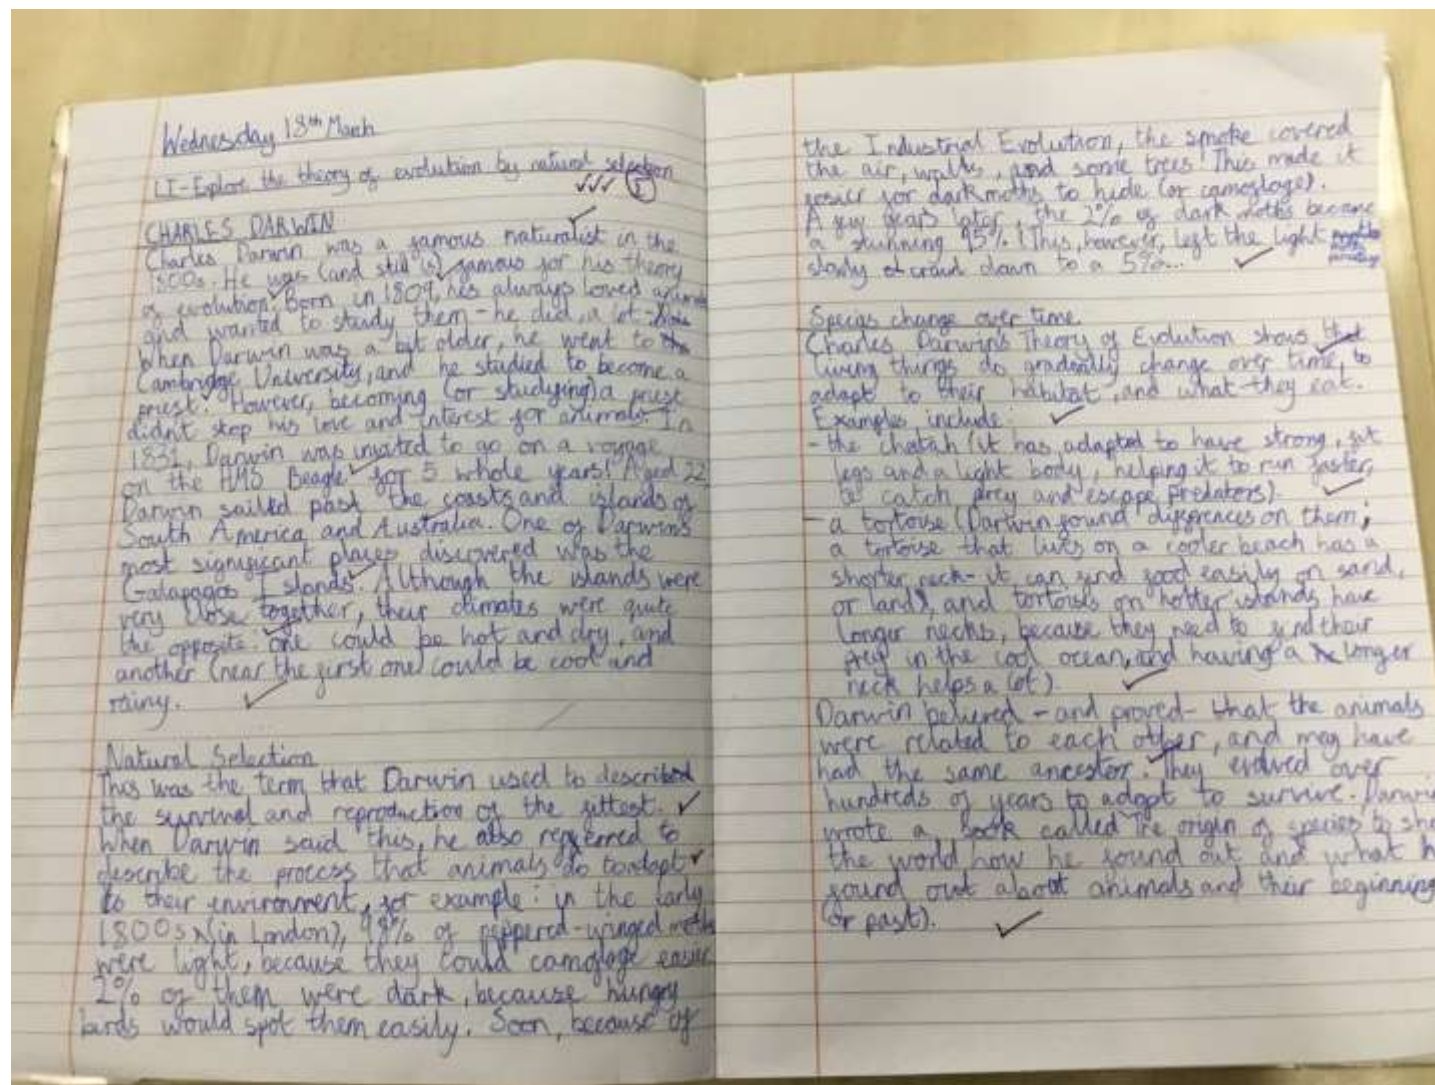 Wednesday 18th March
LI-Explore the theory of evolution by natural selection
CHARLES DARWIN
Charles Darwin was a famous naturalist in the
1800s. He was (and still is) famous for his theory
of evolution. Born in 1809, he's always loved
and wanted to study them - he did, a lot -
When Darwin was a bit older, he went to
Cambridge University, and he studied to become a
priest. However, becoming (or studying) a priest
didn't stop his love and interest for animals. In
1831, Darwin was invited to go on a voyage
on the HMS Beagle for 5 whole years! Aged 22
Darwin sailed past the coasts and islands of
South America and Australia. One of Darwin's
most significant places discovered was the
Galapagos Islands. Although the islands were
very close together, their climates were quite
the opposite. One could be hot and dry, and
another (near the first one) could be cool and
rainy.
Natural Selection
This was the term that Darwin used to described
the survival and reproduction of the fittest.
When Darwin said this, he also referred to
describe the process that animals do to adapt
to their environment, for example: in the early
1800s (in London), 98% of peppered-winged moths
were light, because they could camoflage easier
2% of them were dark, because hungry
birds would spot them easily. Soon, because of
the Industrial Evolution, the smoke covered
the air, walls, and some trees! This made it
easier for dark moths to hide (or camoflage).
A few years later, the 2% of dark moths became
a stunning 95%! This, however, left the light
slowly crawl down to a 5%...
Species change over time
Charles Darwin's Theory of Evolution shows that
living things do gradually change over time, to
adapt to their habitat, and what they eat.
Examples include:
- the chatah (it has adapted to have strong, fit
legs and a light body, helping it to run faster,
to catch prey and escape predators).
- a tortoise (Darwin found differences on them;
a tortoise that lives on a cooler beach has a
shorter neck - it can find food easily on sand,
or land), and tortoises on hotter islands have
longer necks, because they need to find their
prey in the cool ocean, and having a longer
neck helps a lot).
Darwin believed - and proved - that the animals
were related to each other, and may have
had the same ancestor. They evolved over
hundreds of years to adapt to survive. Darwin
wrote a book called The origin of species to sho
the world how he found out and what h
found out about animals and their beginning
(or past).